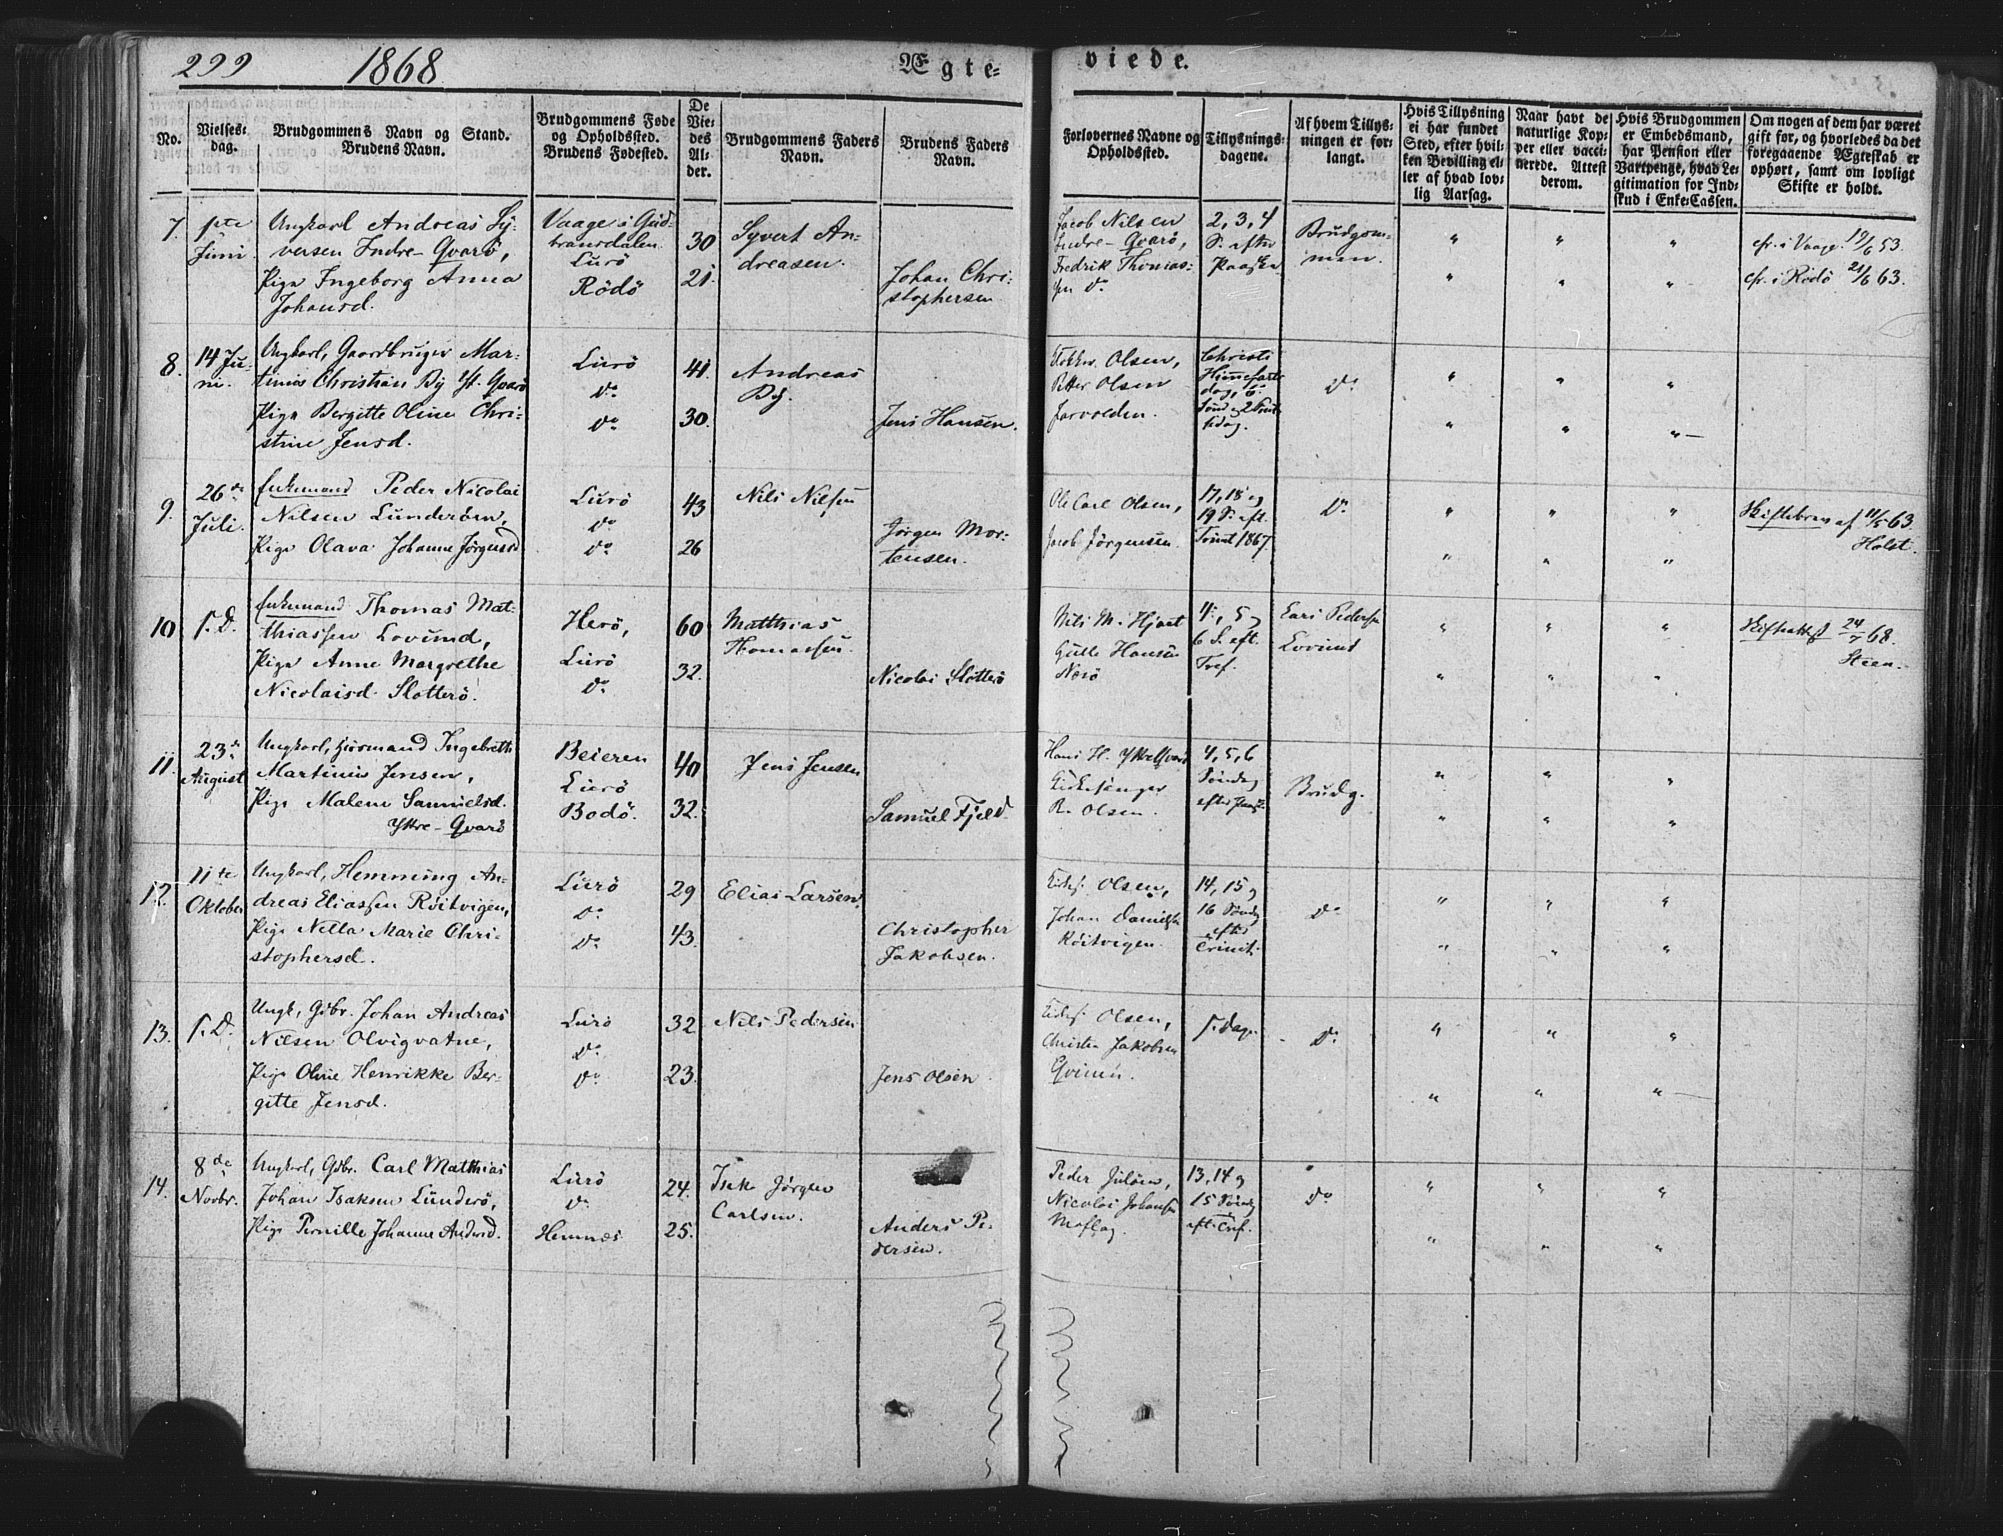 299 1868 Ægte- viede.
No.
Vielses-
dag.
Brudgommens Navn og Stand.
Brudens Navn.
Brudgommens Føde
og Opholdssted.
Brudens Fødested.
De
Vie-
des
Al-
der.
Brudgommens Faders
Navn.
Brudens Faders
Navn.
Forlovernes Navne og
Opholdssted.
Tillysnings-
dagene.
Af hvem Tillys-
ningen er for-
langt.
Hvis Tillysning
ei har fundet
Sted, efter hvil-
ken Bevilling el-
ler af hvad lov-
lig Aarsag.
Naar havt de
naturlige Kop-
per eller vacci-
nerede. Attest
derom.
Hvis Brudgommen
er Embedsmand,
har Pension eller
Vartpenge, hvad Le-
gitimation for Ind-
skud i Enke-Cassen.
Om nogen af dem har været
gift før, og hvorledes da det
foregaaende Ægteskab er
ophørt, samt om lovligt
Skifte er holdt.
7.
1ste
Juni.
Ungkarl Andreas Sy-
versen Indre-Qvarø,
Pige Ingeborg Anna
Johansd.
Vaage i Gud-
bransdalen
Lurö
Rödö
30
21.
Syvert An-
dreasen.
Johan Chri-
stophersen
Jacob Nilsen
Indre-Qvarø,
Fredrik Thomas-
sen do
2, 3, 4
S. efter
Paaske
Brudgom-
men.
" " "
" " "
cfr. i Vaage 19/6 53.
cfr. i Rödö 21/6 63.
8.
14 Ju-
ni.
Ungkarl, Gaardbruger Mar-
tinus Christian By Yt. Qvarø
Pige Bergitte Oline Chri-
stine Jensd.
Lurö
do
do
41.
30.
Andreas
By.
Jens Hansen.
Olsen,
Petter Olsen
Christi
Himmelfarts
dag, 6
Sønd og 2 Pint-
sedag.
do
" " "
" " "
9.
26de
Juli.
Enkemand Peder Nicolai
Nilsen Lunderöen,
Pige Olava Johanne Jørgensd
Lurö
do
do
43
26
Nils Nilsen
Jörgen Mor-
tensen.
Ole Carl Olsen,
Jacob Jörgensen.
17, 18 og
19 S. eft.
Trinit 1867.
do
" " "
" " "
Skiftebrev af 11/5 63.
Holst.
10
s. D.
Enkemand Thomas Mat-
thiassen Lovund,
Pige Anne Margrethe
Nicolaisd. Slotterö.
Herö,
Lurö
do
60
32.
Matthias
Thomassen.
Nicolai Slotterö
Nils M. Hjart
Gulle Hansen
Nesö
4, 5 og
6 S. eft.
Tref.
Lars Pedersen
Lovund
" " "
" " "
Skifteattest 24/7 68.
Steen.
11.
23de
August
Ungkarl, Huusmand Ingebreth
Martinus Jensen,
Pige Malene Samuelsd.
Yttre-Qvarö
Beieren
Lurö
Bodö.
40
32.
Jens Jensen
Samuel Fjeld
Hans H. Yttre Qvarö
Kirkesanger
R. Olsen.
4, 5, 6
Söndag
efter Paaske
Brudg.
" " "
" " "
12.
11te
Oktober
Ungkarl, Hemming An-
dreas Eliassen Röitvigen,
Pige Nella Marie Chri-
stophersd.
Lurö
do
do
29
43.
Elias Larsen.
Christopher
Jakobsen.
Kirkes. Olsen,
Johan Danielsen
Röitvigen.
14, 15 og
16 Söndag
efter
Trinit.
do
" " "
" " "
13.
s. D.
Ungk, Gdbr. Johan Andreas
Nilsen Olvigvatne,
Pige Oline Henrikke Ber-
gitte Jensd.
Lurö
do
do
32
23.
Nils Pedersen
Jens Olsen.
Kirkes. Olsen,
Christen Jakobsen
Qvinen.
s. Dage
do
" " "
" " "
14.
8de
Novbr.
Ungkarl, Gdbr. Carl Matthias
Johan Isaksen Lunderö,
Pige Pernille Johanne Andersd.
Lurö
do
Hemnæs
24.
25.
Isak Jörgen
Carlsen.
Anders Pe-
dersen.
Peder Julöen,
Nicolai Johansen
Moflag.
13, 14 og
15 Söndag
eft. Tref.
do
" " "
" " "